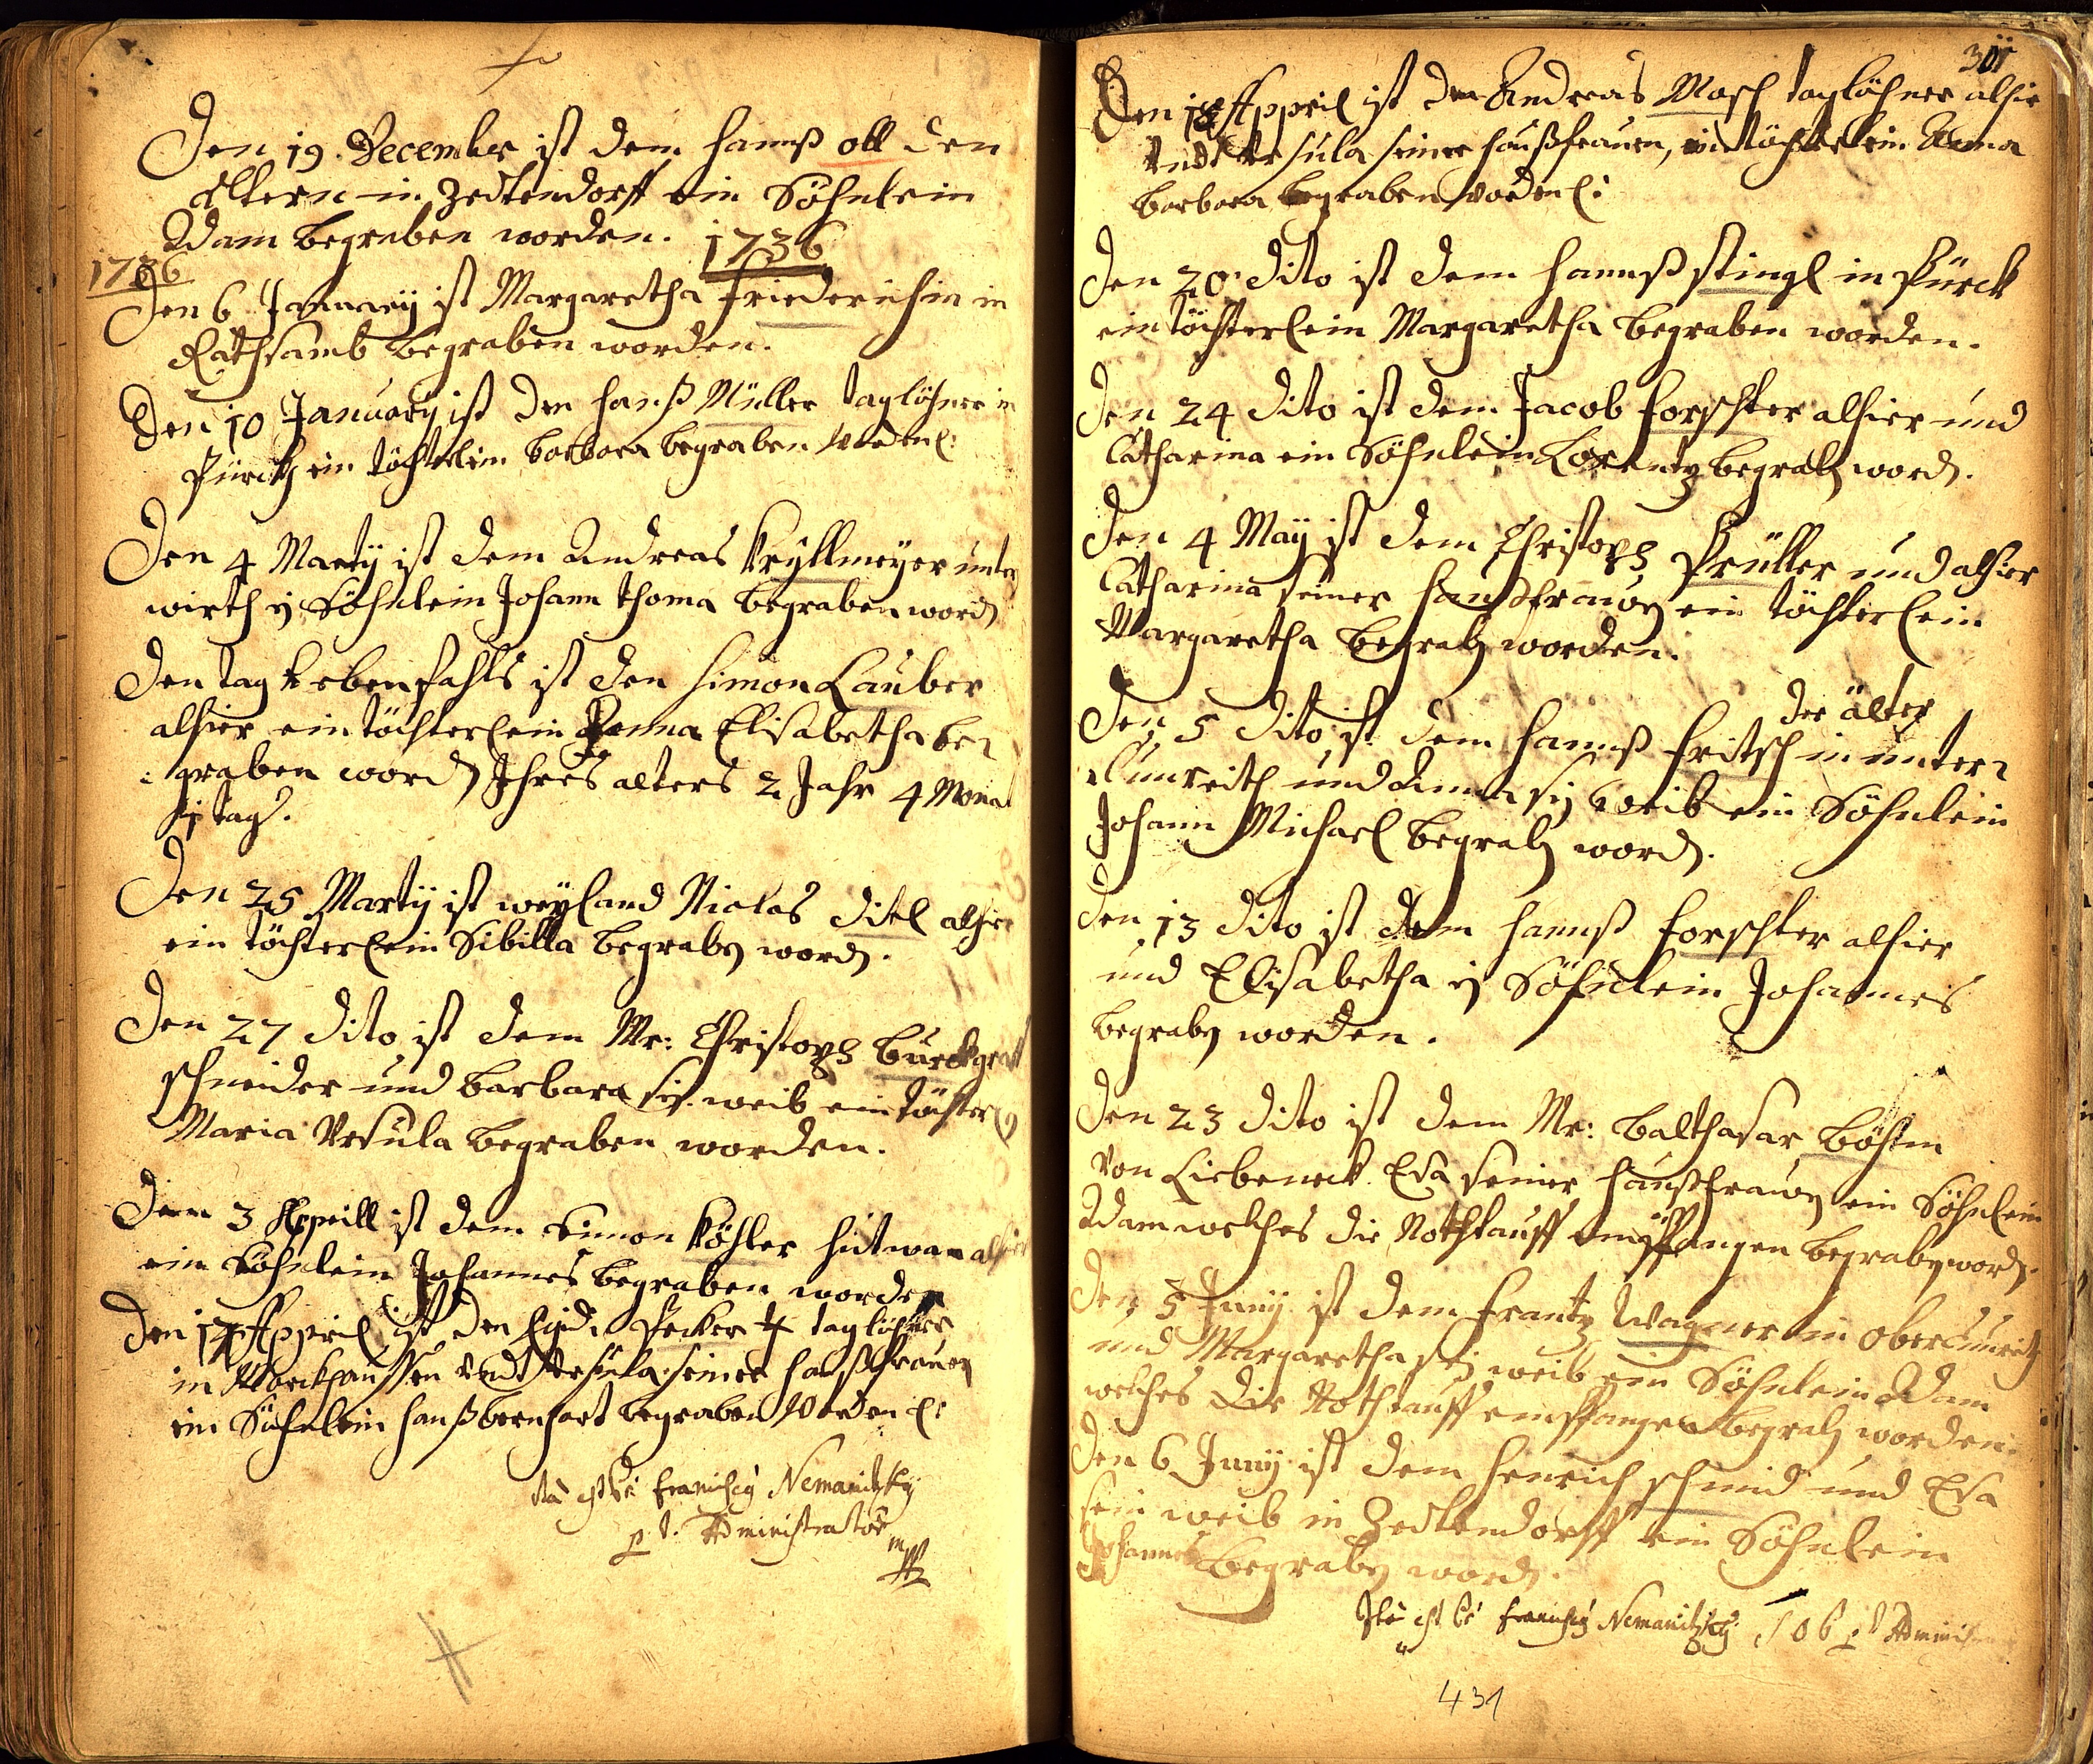 Den 19. December ist dem Hannß Oll den
ältern in Zedtendorff ein Söhnlein
Adam begraben worden. 1736
1736
Den 6 January ist Margaretha Friederichin in
Rathsamb begraben worden.
Den 10 January ist den Hanß Müller taglöhner in
Pürckh ein töchterlein Barbara begraben worden
Den 4 Marty ist dem Andreas Krÿllmeyer unter
wirth ein Söhnlein Johann Thoma begraben word
Den tag ebenfahls ist den Simon Lauber
alhier ein töchterlein Anna Elisabetha be
graben word Ihres alters 2 Jahr 4 Monat
tag.
Den 25 Marty ist weyland Niclas Ditl alhier
ein töchterlein Sibilla begrab word.
Den 27 dito ist dem Mr: Christoph Burckgraff
schneider und Barbara sein weib ein töchterl
Maria Ursula begraben worden.
Den 3 Apprill ist dem Simon Köhler hutman alhier
ein Söhnlein Johannes begraben worden
Den 17 Appril ist den Egidi Pecker taglöhner
in Marckhaussen undt Ursula seiner haußfrauen
ein Söhnlein Hanß Bernhart begraben worden
Ita est Franciscg Nemanitzky
p t. Administrator
mpp
311
Den 18 Appril ist den Andreas Mosch taglöhner alhie
undt Ursula seiner haußfrauen, ein töchterlein Anna
Barbara begraben worden
Den 20 dito ist dem Hannß Stingl in Pürck
ein töchterlein Margaretha begraben worden.
Den 24 dito ist dem Jacob Forschter alhier und
Catharina ein Söhnlein Lorentz begrab word.
Den 4 May ist dem Christoph Prüller und alhier
Catharina seiner haußfrauen ein töchterlein
Margaretha begrab worden.
der älter
Den 5 dito ist dem Hannß Fritsch in unter
Cunreith und Anna sein weib ein Söhnlein
Johann Michael begrab word.
Den 13 dito ist dem Hannß Forschter alhier
und Elisabetha ein Söhnlein Johannes
begrab worden.
Den 23 dito ist dem Mr: Balthasar Böhm
von Liebeneck Eva seiner haußfrauen ein Söhnlein
Adam welches die Nothtauff empfangen begrab word.
Den 5 Juny ist dem Frantz Wagner in Obercunreit
und Margaretha sein weib ein Söhnlein Adam
welches die Nothtauff empfangen begrab worden.
Den 6 Juny ist dem Henrich Schmid und Eva
sein weib in Zedtendorff ein Söhnlein
Johannes begrab word.
Ita est Franciscg Nemanitzky p t Administ
431